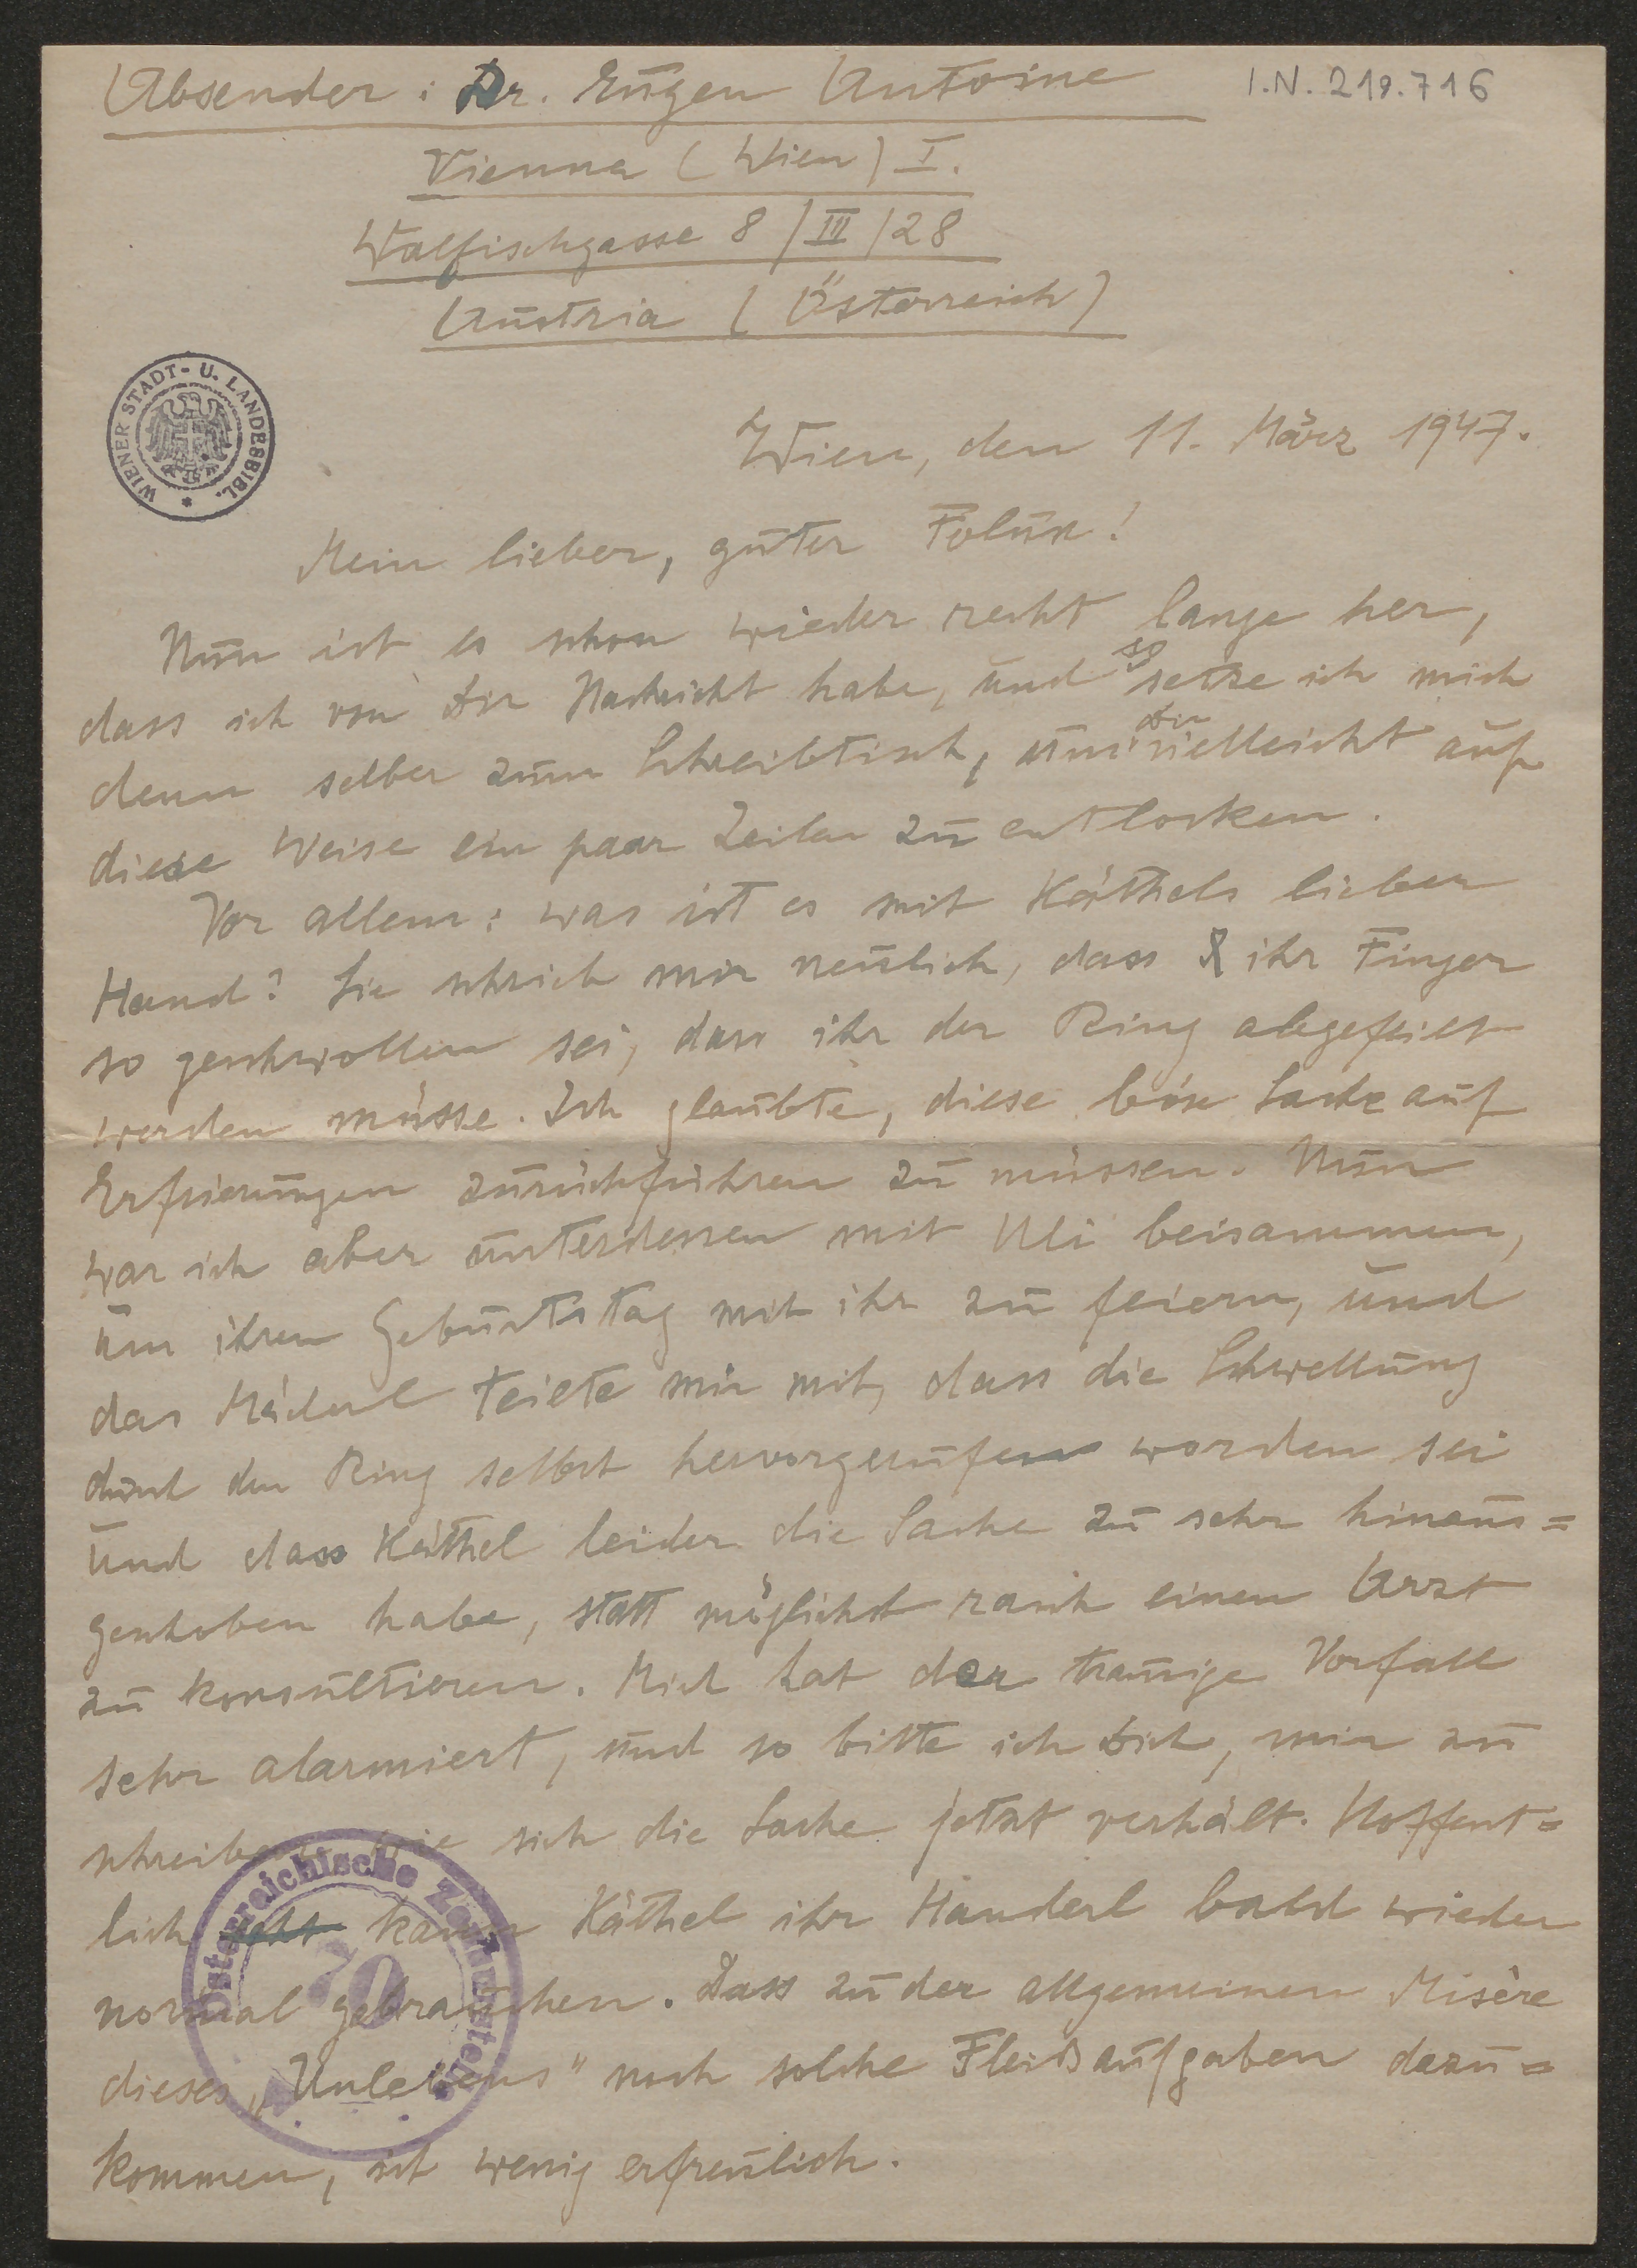 Absender: Dr. Eugen Antoine
I.N. 218.716
Vienna (Wien) I.
Walfischgasse 8/III/28
Austria (Österreich)
WIENER STADT- U. LANDESBIBL. *
Wien, den 11. März 1947.
Mein lieber, guter Folux!
Nun ist es schon wieder recht lange her,
dass ich von Dir Nachricht habe, und so setze ich mich
denn selber zum Schreibtisch, um Dir vielleicht auf
diese Weise ein paar Zeilen zu entlocken.
Vor allem: was ist es mit Käthels lieber
Hand? Sie schrieb mir neulich, dass ihr Finger
so geschwollen sei, dass ihr der Ring abgefeilt
werden müsse. Ich glaubte, diese böse Sache auf
Erfrierungen zurückführen zu müssen. Nun
war ich aber unterdessen mit Uli beisammen,
um ihren Geburtstag mit ihr zu feiern, und
das Mäderl teilte mir mit, dass die Schwellung
durch den Ring selbst hervorgerufen worden sei
und dass Käthel leider die Sache zu sehr hinaus=
geschoben habe, statt möglichst rasch einen Arzt
zu konsultieren. Mich hat der traurige Vorfall
sehr alarmiert, und so bitte ich Dich, mir zu
schreiben, wie sich die Sache jetzt verhält. Hoffent=
lich kann Käthel ihr Handerl bald wieder
normal gebrauchen. Dass zu der allgemeinen Misère
dieses „Unlebens" noch solche Fleißaufgaben dazu=
kommen, ist wenig erfreulich.
Österreichische Zensurstelle
70